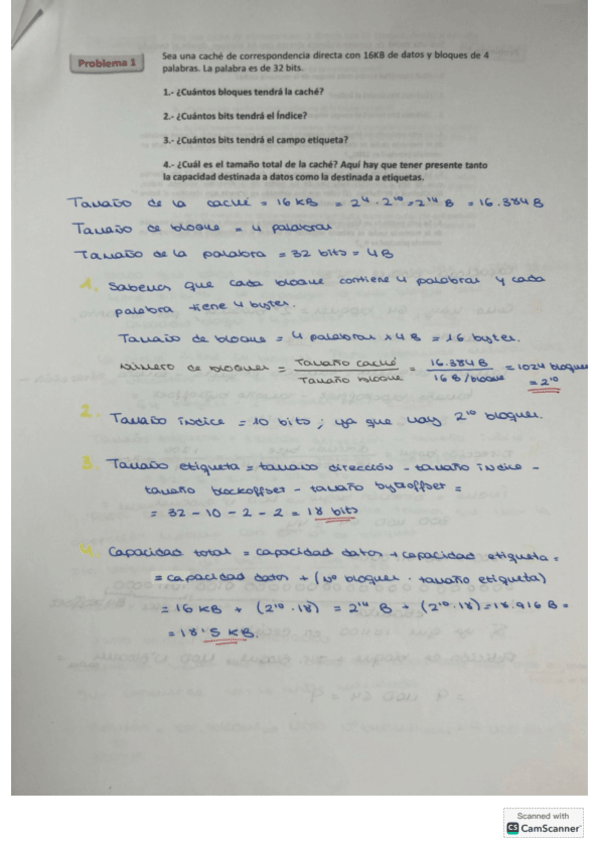 Problema 1
Sea una caché de correspondencia directa con 16KB de datos y bloques de 4
palabras. La palabra es de 32 bits.
1.- ¿Cuántos bloques tendrá la caché?
2.- ¿Cuántos bits tendrá el Índice?
3.- ¿Cuántos bits tendrá el campo etiqueta?
4.- ¿Cuál es el tamaño total de la caché? Aquí hay que tener presente tanto
la capacidad destinada a datos como la destinada a etiquetas.
Tamaño de la caché = 16 KB = 2⁴ · 2¹⁰ = 2¹⁴ B = 16.384 B
Tamaño de bloque = 4 palabras
Tamaño de la palabra = 32 bits = 4B
1. Sabemos que cada bloque contiene 4 palabras y cada
palabra tiene 4 bytes.
Tamaño de bloque = 4 palabras x 4 B = 16 bytes.
Número de bloques = Tamaño caché / Tamaño bloque = 16.384 B / 16 B/bloque = 1024 bloques
= 2¹⁰
2. Tamaño índice = 10 bits, ya que hay 2¹⁰ bloques.
3. Tamaño etiqueta = tamaño dirección - tamaño índice -
tamaño blockoffset - tamaño byteoffset =
= 32 - 10 - 2 - 2 = 18 bits
4. Capacidad total = capacidad datos + capacidad etiqueta =
= capacidad datos + (nº bloques · tamaño etiqueta)
= 16 KB + (2¹⁰ · 18) = 2¹⁴ B + (2¹⁰ · 18) = 18.916 B =
= 18'5 KB.
Scanned with
CS CamScanner